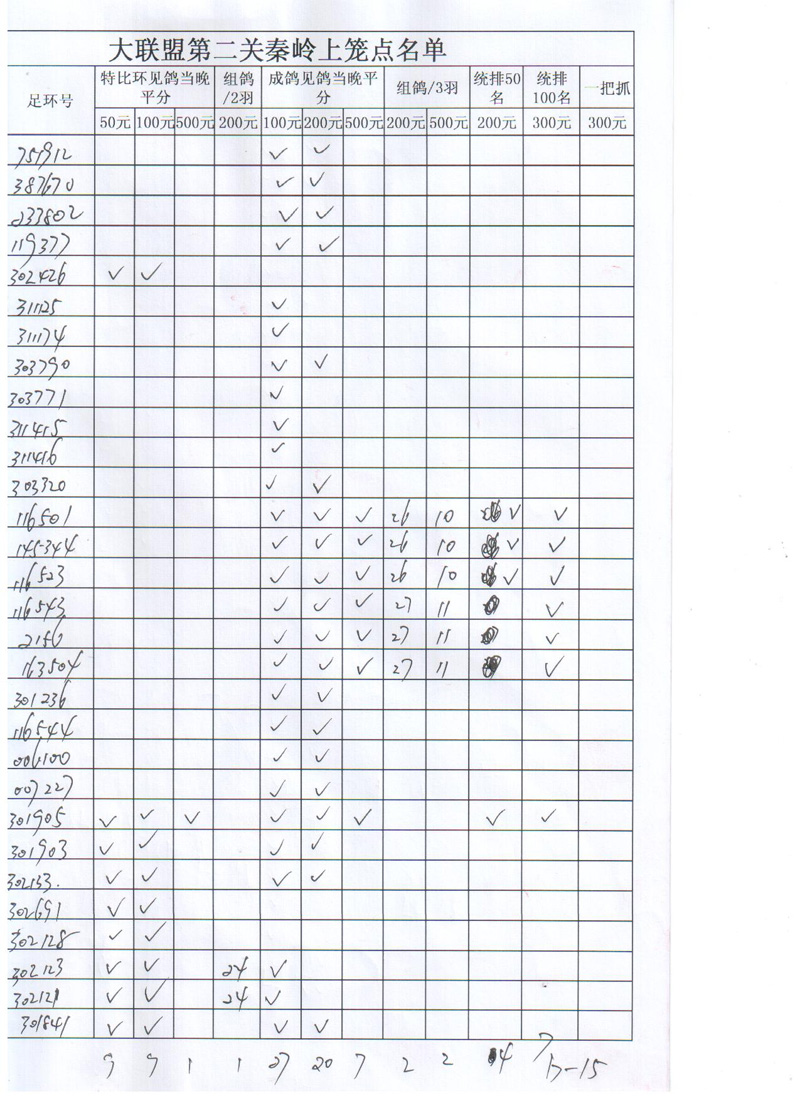 大联盟第二关秦岭上笼点名单
足环号 特比环见鸽当晚平分 组鸽/2羽 成鸽见鸽当晚平分 组鸽/3羽 统排50名 统排100名 一把抓
50元 100元 500元 200元 100元 200元 500元 200元 500元 200元 300元 300元
751912 ✓ ✓
387670 ✓ ✓
233802 ✓ ✓
119377 ✓ ✓
302426 ✓ ✓
311125 ✓
311174 ✓
303790 ✓ ✓
303771 ✓
311415 ✓
311416 ✓
303320 ✓ ✓
116501 ✓ ✓ ✓ 26 10 ✓ ✓
145344 ✓ ✓ ✓ 26 10 ✓ ✓
116523 ✓ ✓ ✓ 26 10 ✓ ✓
116543 ✓ ✓ ✓ 27 11 ✓
2156 ✓ ✓ ✓ 27 11 ✓
163504 ✓ ✓ ✓ 27 11 ✓
301236 ✓ ✓
116544 ✓ ✓
006100 ✓ ✓
007227 ✓ ✓
301905 ✓ ✓ ✓ ✓ ✓ ✓ ✓ ✓
301903 ✓ ✓ ✓ ✓
302133. ✓ ✓ ✓ ✓
302691 ✓ ✓
302128 ✓ ✓
302123 ✓ ✓ 24 ✓
302121 ✓ ✓ 24 ✓
301841 ✓ ✓ ✓ ✓
9 9 1 1 27 20 7 2 2 4 7
17-15